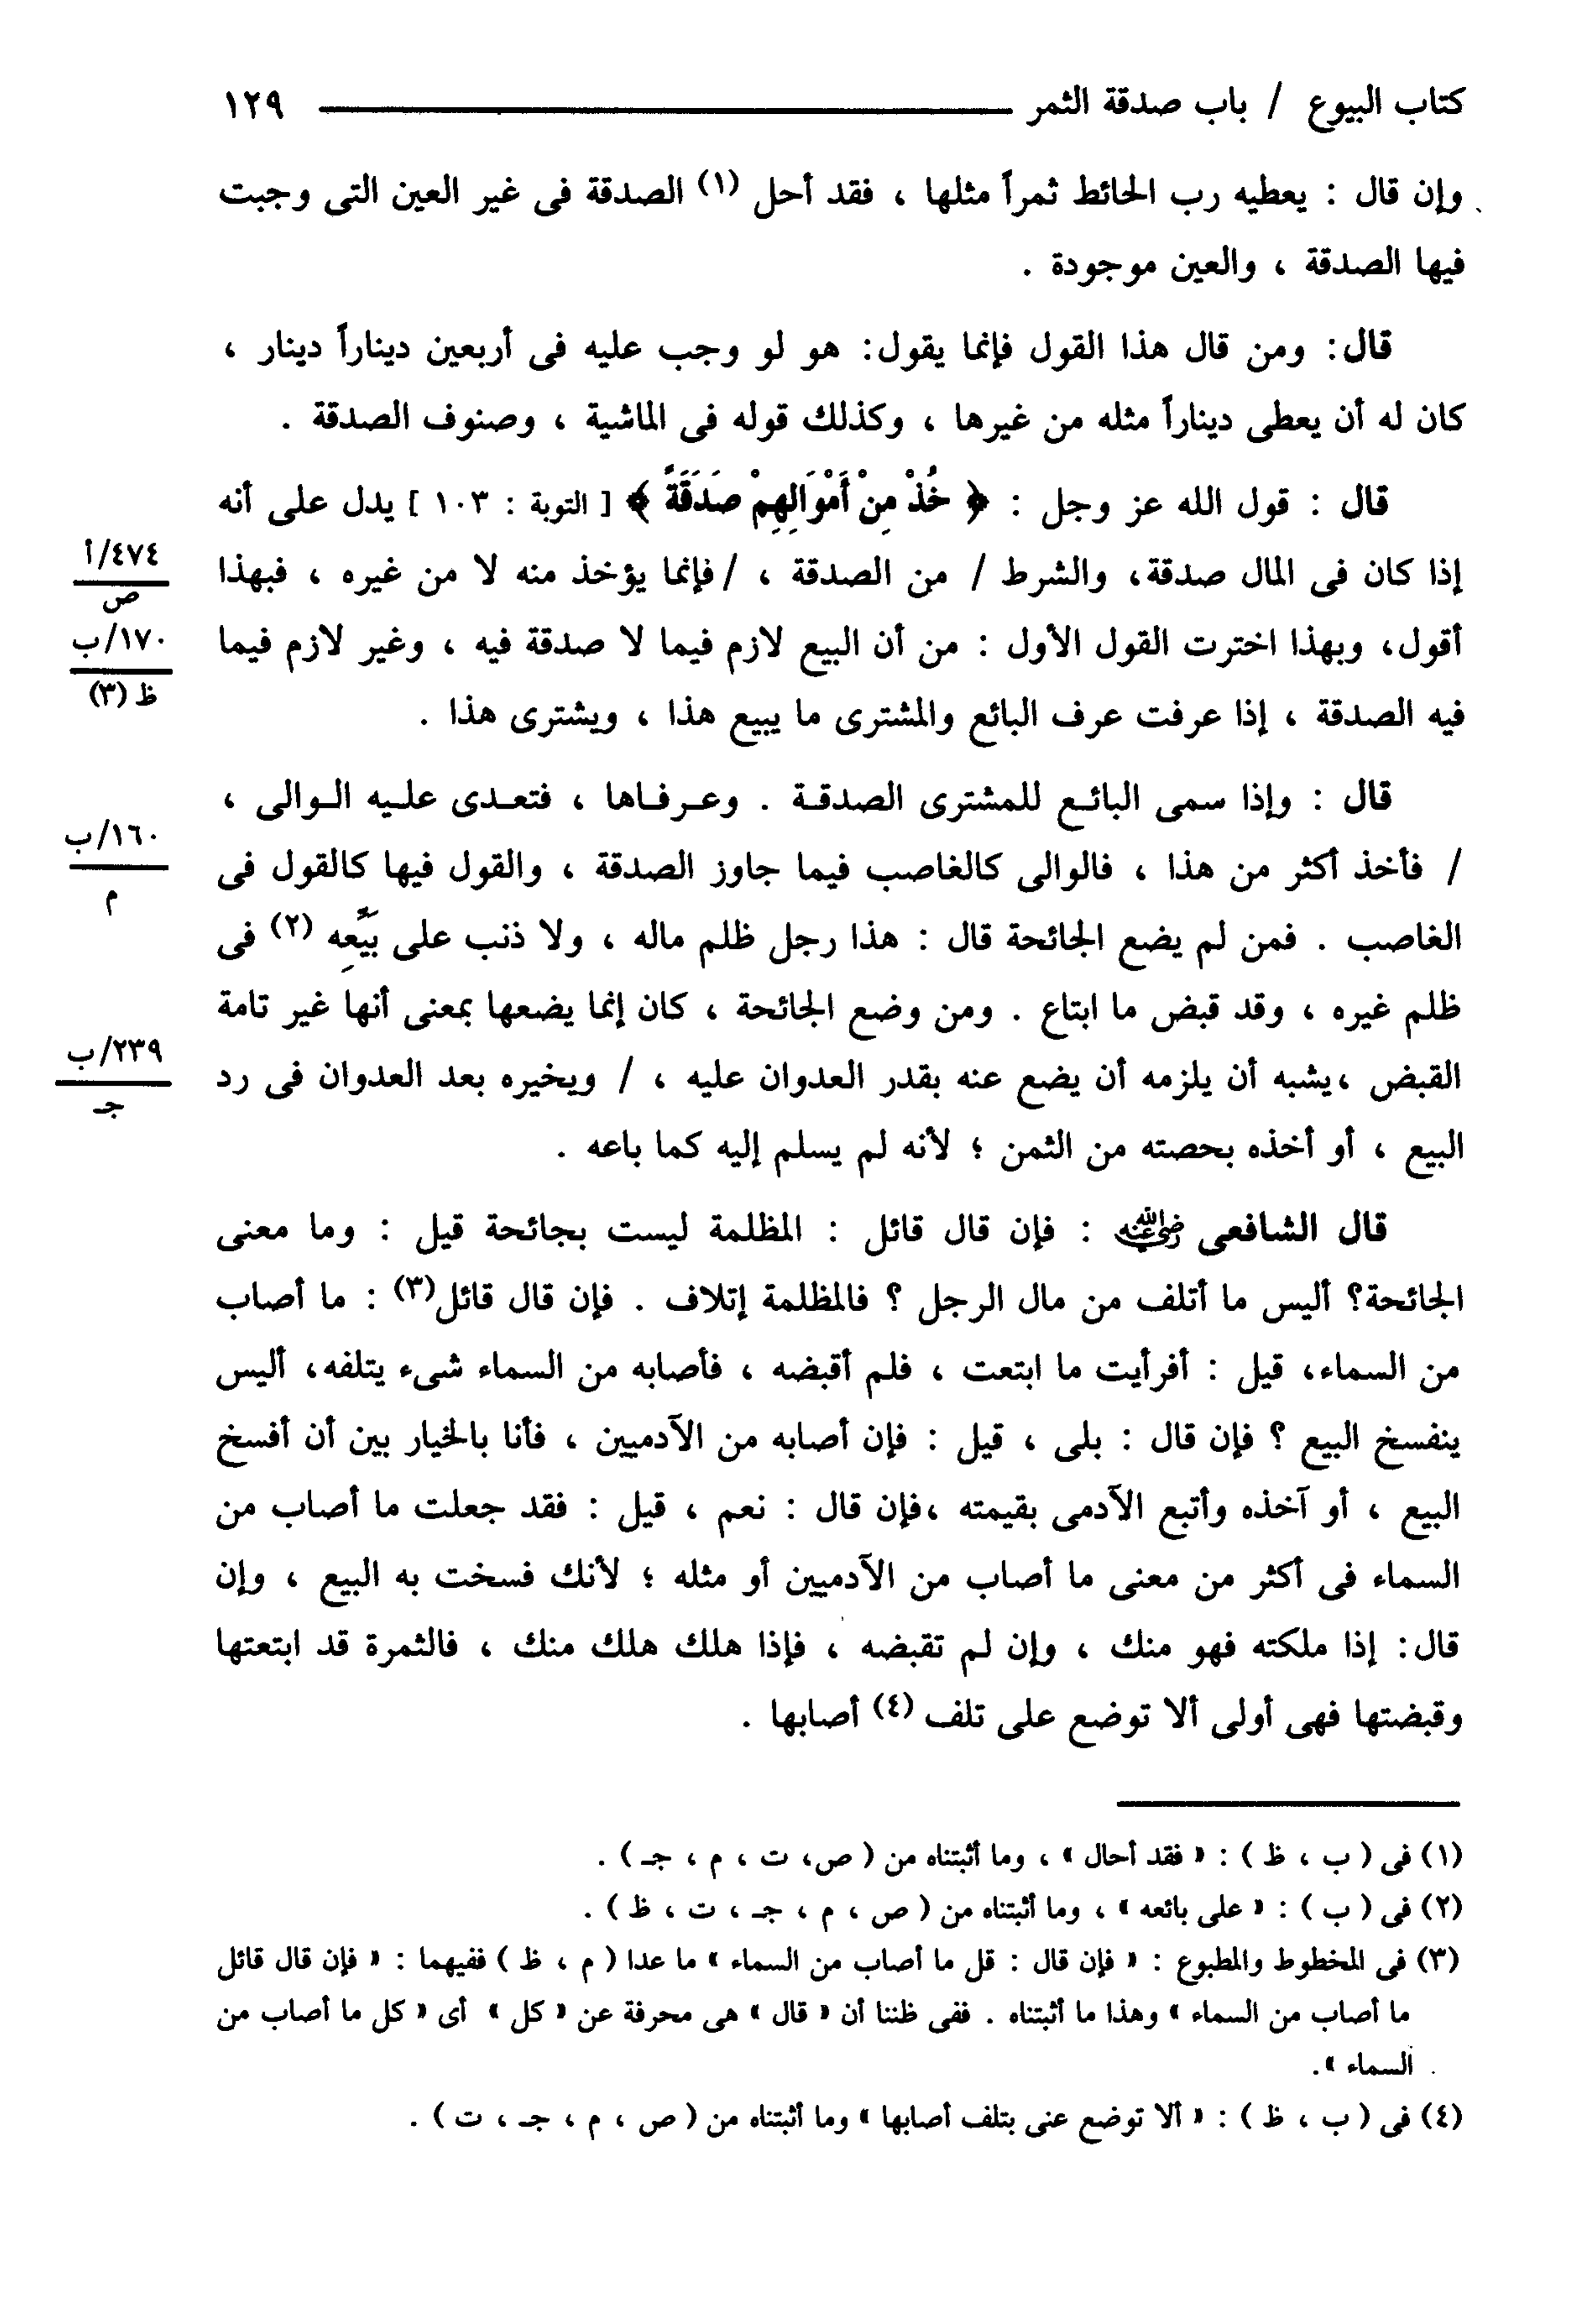 كتاب البيوع / باب صدقة الثمر ١٢٩
وإن قال : يعطيه رب الحائط ثمراً مثلها ، فقد أحل (١) الصدقة فى غير العين التى وجبت
فيها الصدقة ، والعين موجودة .
قال : ومن قال هذا القول فإنما يقول : هو لو وجب عليه فى أربعين ديناراً دينار ،
كان له أن يعطى ديناراً مثله من غيرها ، وكذلك قوله فى الماشية ، وصنوف الصدقة .
قال : قول الله عز وجل : ﴿ خُذْ مِنْ أَمْوَالِهِمْ صَدَقَةً ﴾ [ التوبة : ١٠٣ ] يدل على أنه
إذا كان فى المال صدقة، والشرط / من الصدقة ، / فإنما يؤخذ منه لا من غيره ، فبهذا
أقول، وبهذا اخترت القول الأول : من أن البيع لازم فيما لا صدقة فيه ، وغير لازم فيما
فيه الصدقة ، إذا عرفت عرف البائع والمشترى ما يبيع هذا ، ويشترى هذا .
٤٧٤/أ
ص
١٧٠/ب
ظ (٣)
قال : وإذا سمى البائع للمشترى الصدقة . وعرفاها ، فتعدى عليه الوالى ،
/ فأخذ أكثر من هذا ، فالوالى كالغاصب فيما جاوز الصدقة ، والقول فيها كالقول فى
الغاصب . فمن لم يضع الجائحة قال : هذا رجل ظلم ماله ، ولا ذنب على بَيِّعِه (٢) فى
ظلم غيره ، وقد قبض ما ابتاع . ومن وضع الجائحة ، كان إنما يضعها بمعنى أنها غير تامة
القبض ،يشبه أن يلزمه أن يضع عنه بقدر العدوان عليه ، / ويخيره بعد العدوان فى رد
البيع ، أو أخذه بحصته من الثمن ؛ لأنه لم يسلم إليه كما باعه .
١٦٠/ب
م
٢٣٩/ب
جـ
قال الشافعى رضي الله عنه : فإن قال قائل : المظلمة ليست بجائحة قيل : وما معنى
الجائحة؟ أليس ما أتلف من مال الرجل ؟ فالمظلمة إتلاف . فإن قال قائل(٣) : ما أصاب
من السماء، قيل : أفرأيت ما ابتعت ، فلم أقبضه ، فأصابه من السماء شىء يتلفه، أليس
ينفسخ البيع ؟ فإن قال : بلى ، قيل : فإن أصابه من الآدميين ، فأنا بالخيار بين أن أفسخ
البيع ، أو آخذه وأتبع الآدمى بقيمته ،فإن قال : نعم ، قيل : فقد جعلت ما أصاب من
السماء فى أكثر من معنى ما أصاب من الآدميين أو مثله ؛ لأنك فسخت به البيع ، وإن
قال: إذا ملكته فهو منك ، وإن لم تقبضه ، فإذا هلك هلك منك ، فالثمرة قد ابتعتها
وقبضتها فهى أولى ألا توضع على تلف (٤) أصابها .
(١) فى ( ب ، ظ ) : « فقد أحال » ، وما أثبتناه من ( ص، ت ، م ، جـ ) .
(٢) فى ( ب ) : « على بائعه » ، وما أثبتناه من ( ص ، م ، جـ ، ت ، ظ ) .
(٣) فى المخطوط والمطبوع : « فإن قال : قل ما أصاب من السماء » ما عدا ( م ، ظ ) ففيهما : « فإن قال قائل
ما أصاب من السماء » وهذا ما أثبتناه . ففى ظننا أن « قال » هى محرفة عن « كل » أى « كل ما أصاب من
السماء ».
(٤) فى ( ب ، ظ ) : « ألا توضع عنى بتلف أصابها » وما أثبتناه من ( ص ، م ، جـ ، ت ) .